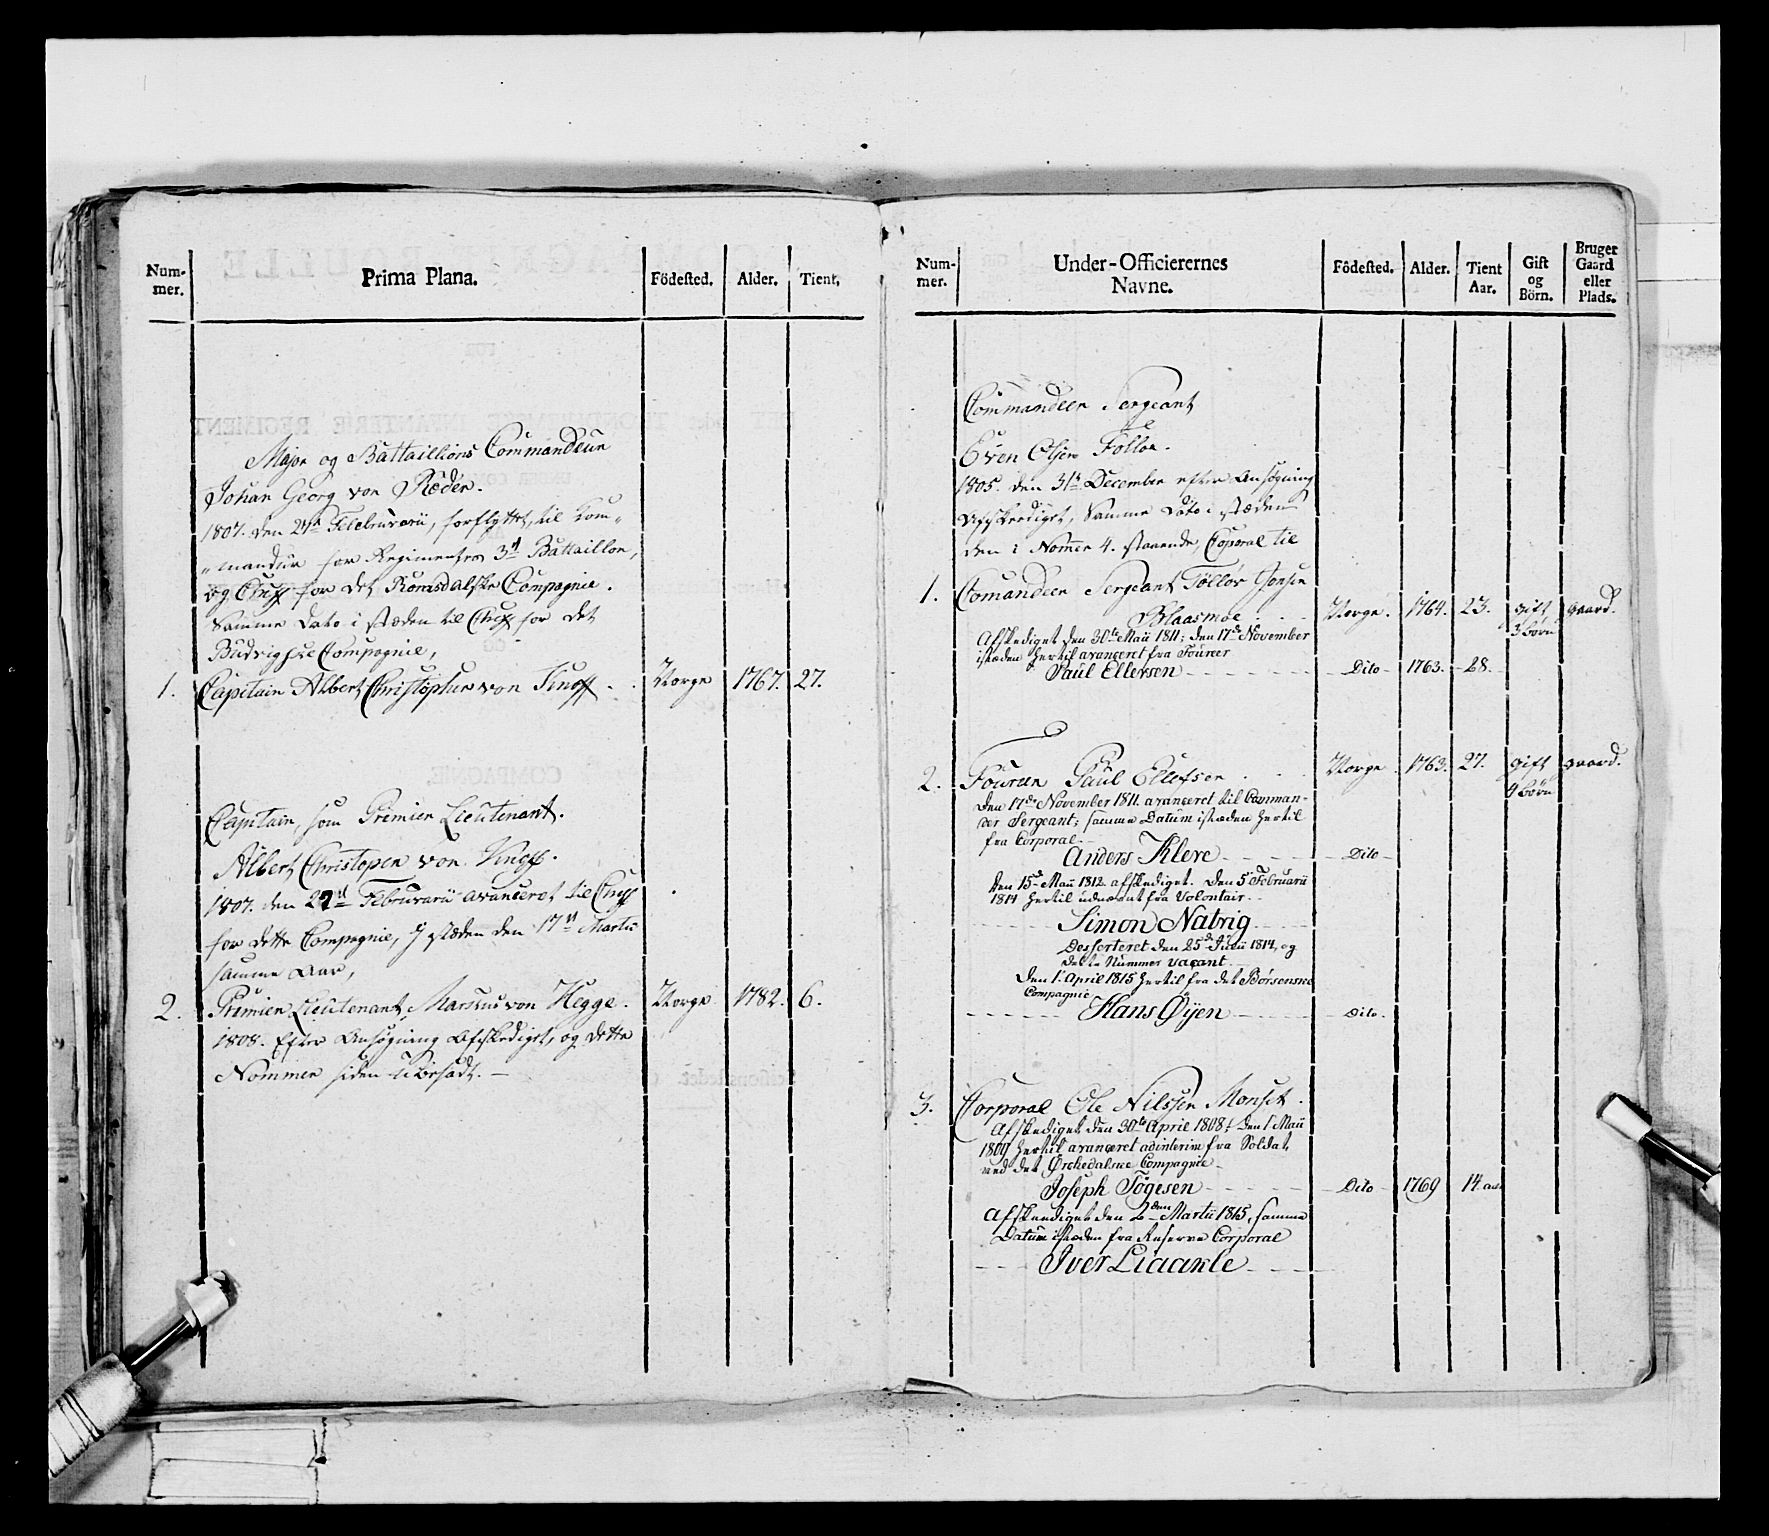 Num-
mer.
Prima Plana.
Födested.
Alder.
Tient.
Major og Battaillions Commandeur
Johan Georg von Ræder.
1807. den 27d Februarii, forflyttet, til Com„
„mandeur for Regimentes 3d Battaillon,
og Cheff for det Romsdalske Compagnie.
Samme Dato i stæden til Cheff for det
Compagnie,
1. Capitain Albert Christopher von Kinoff. Norge 1767. 27.
Capitain, som Premier Lieutenant.
Albert Christopher von
1807. den 27d Februarii avanceret til Cheff
for dette Compagnie, I stæden den 17d Martii
samme Aar,
2. Premier Lieutenant, Marcus von Hegge. Norge 1782. 6.
1808. Efter Ansøgning Afskediget, og dette
Nommer siden ubesadt. —
Num-
mer.
Under-Officierernes
Navne.
Födested.
Alder.
Tient
Aar.
Gift
og
Börn.
Bruger
Gaard
eller
Plads.
Commandeer Sergeant
Even Olsen Folloe.
1805. den 31te December efter Ansøgning
Afskediget, Samme Dato i stæden
den i Nomer 4. staaende, Coporal til
1. Comandeer Sergeant Tølløv Jonsen
Blaasmoe . Norge. 1764. 23. gift 3 børn gaard.
Afskediget den 30te Maii 1811; den 17de November
istæden hertil avanceret fra Foureer
Paul Ellevsen - - - Dito 1763. 28.
2. Foureer Paul Ellefsen . Norge 1763. 27. gift 4 børn gaard.
Den 17de November 1811 avanceret til Comman-
der Sergeant; samme Datum istæden hertil
fra Corporal.
Anders Kleve - - - Dito
Den 15d Maii 1812 afskediget. Den 5 Februarii
1814 hertil udnævnt fra Volontair.
Simon Natvig
Desserteret den 25d 1814, og
dette Nummer vacant.
Den 1 April 1815 hertil fra det Børsenske
Compagnie
Hans Øyen - - - Dito.
3. Corporal Ole Nilssen Monset .
Afskediget den 30te April 1808; den 1 Maii
1809 hertil avanceret adinterim fra Soldat
ved det Ørchedalske Compagnie
Joseph Togesen - - - Dito 1769 14. aar
Afskediget den 2den Martii 1815, samme
Datum istæden fra Reserve Corporal
Iver Liaakle